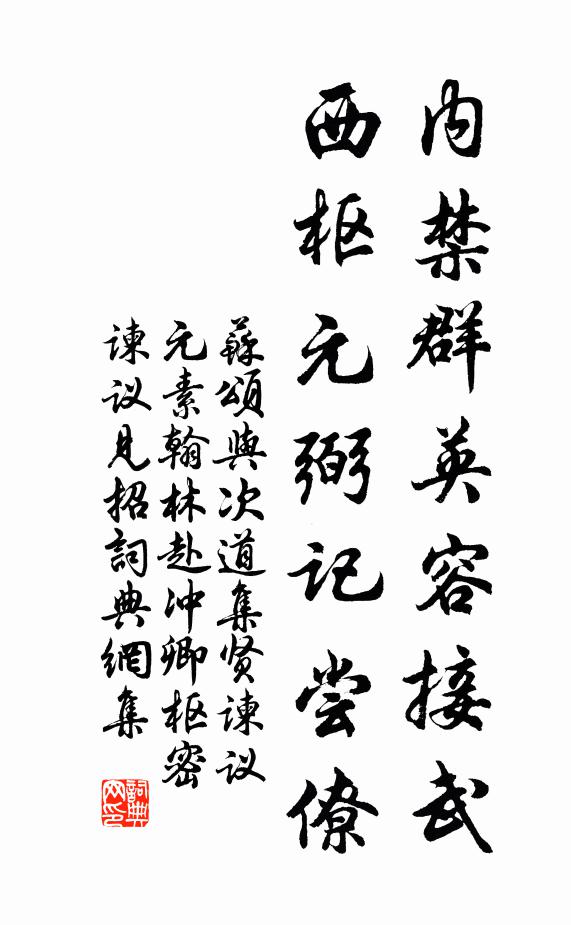 内禁群英容接武
西枢元弼记尝僚
蘇頌與次道集贤谏议
元素翰林赴冲卿枢密
谏议見招詞典網集
詞典网印